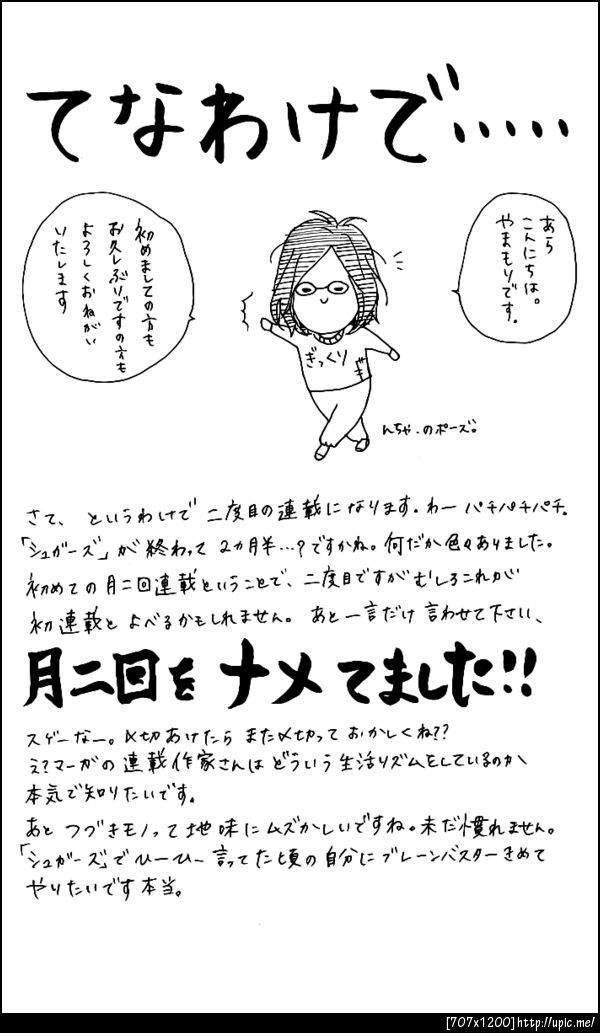 てなわけで・・・・・
あら
こんにちは。
やまもりです。
初めましての方も
お久しぶりですの方も
よろしくおねがい
いたします
ぎっくり
んちゃ.のポーズ。
さて、というわけで 二度目の連載になります。わー パチパチパチ。
「シュガーズ」が終わって 2カ月半…?ですかね。何だか色々ありました。
初めての月二回連載ということで、二度目ですがむしろこれが
初連載とよべるかもしれません。あと一言だけ 言わせて下さい、
月二回をナメてました!!
スゲーなー。〆切あけたら また〆切って おかしくね??
え?マーガの連載作家さんは どういう生活リズムをしているのか
本気で知りたいです。
あと つづきモノって地味にムズかしいですね。未だ慣れません。
「シュガーズ」でひーひー言ってた頃の自分にブレーンバスターきめて
やりたいです本当。
[707x1200]http://upic.me/